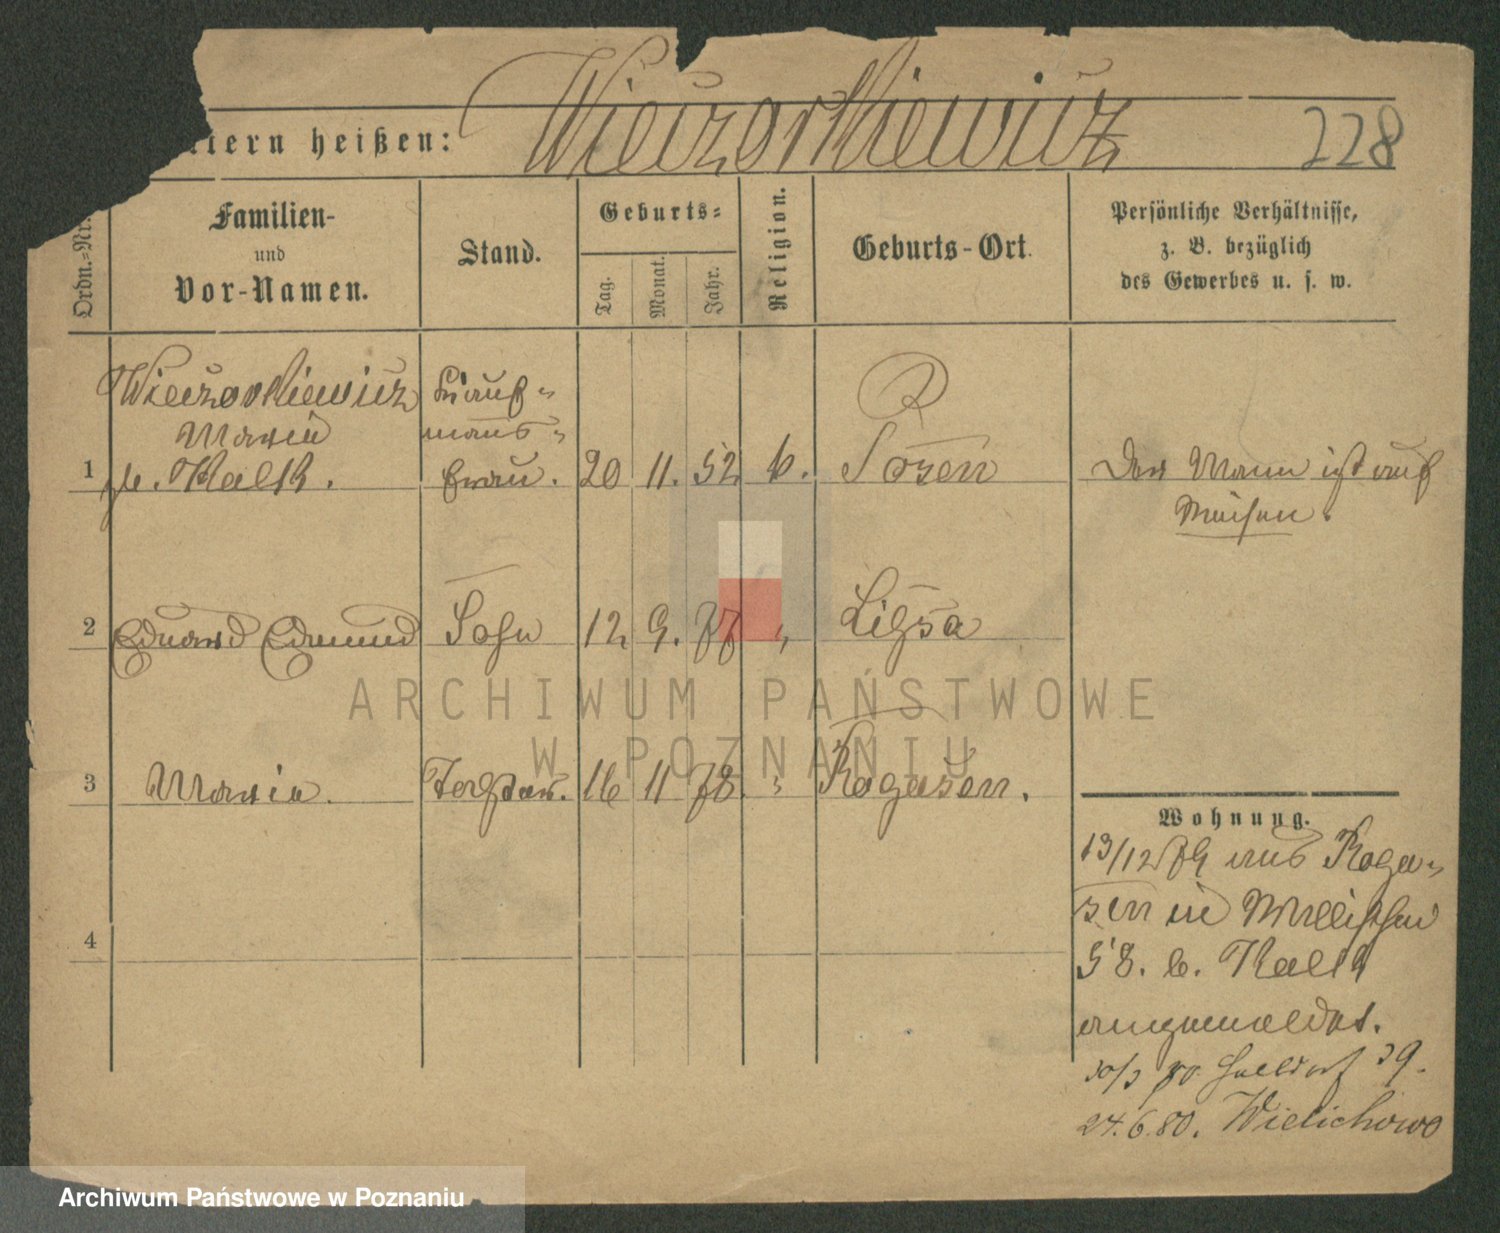 ltern heißen: Wieczorkiewicz 228
Ordn.-Nr.
Familien-
und
Vor-Namen.
Stand.
Geburts-
Tag. Monat. Jahr.
Religion.
Geburts-Ort.
Persönliche Verhältnisse,
z. B. bezüglich
des Gewerbes u. s. w.
Wieczorkiewicz Kauf-
Maria manns-
1 gb. Kalk. frau. 20 11. 52 k. Posen Der Mann ist auf
Reisen.
2 Eduard Edmund Sohn 12 9. 77 " 
3 Maria. Tochter. 16 11 78. " Rogasen.
4
Wohnung.
13/12 79 aus Roga-
sen in Wallischei
58. b. Kalk
angemeldet.
30/3 80. 39.
24.6.80. Wielichowo
ARCHIWUM PAŃSTWOWE
W POZNANIU
Archiwum Państwowe w Poznaniu